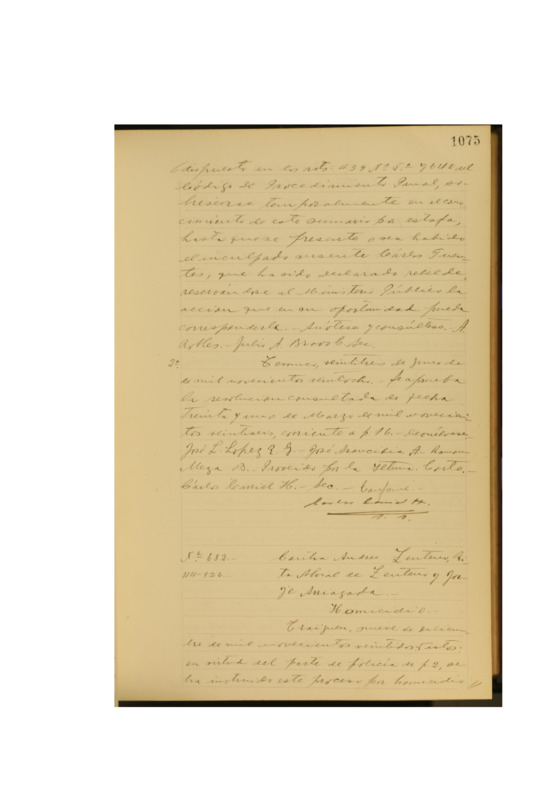 1075
dispuesto en los arts. 439 N° 5° y 640 del
Código de Procedimiento Penal, so-
breséese temporalmente en el cono-
cimiento de este sumario por estafa,
hasta que se presente o sea habido
el inculpado ausente Cárlos Fuen-
tes, que ha sido declarado rebelde,
reservándose al Ministerio Público la
accion que en su oportunidad pueda
corresponderle.- Anótese y consúltese. A.
Robles.- Julio A. Bravo C. Sec.
2°. Temuco, veintitres de Junio de
de mil novecientos veintiocho.- Se aprueba
la resolucion consultada de fecha
treinta y uno de Marzo de mil novecien-
tos veintiseis, corriente a f 16.- Devuélvase.
José L. Lopez R. G.- José Saavedra A. Ramon
Meza B. Proveido por la Iltma. Corte.-
Cárlos Daniel H.- Sec.- Conforme.-
Carlos Daniel H.
N° 682.- Contra Andres Zenteno, Ri-
ta Moral de Zenteno y Jor-
je Arriagada.-
Homicidio.-
Traiguen, nueve de Diciem-
bre de mil novecientos veintidos; vistos:
en virtud del parte de policia de f 2, se
ha instruido este proceso por homicidio